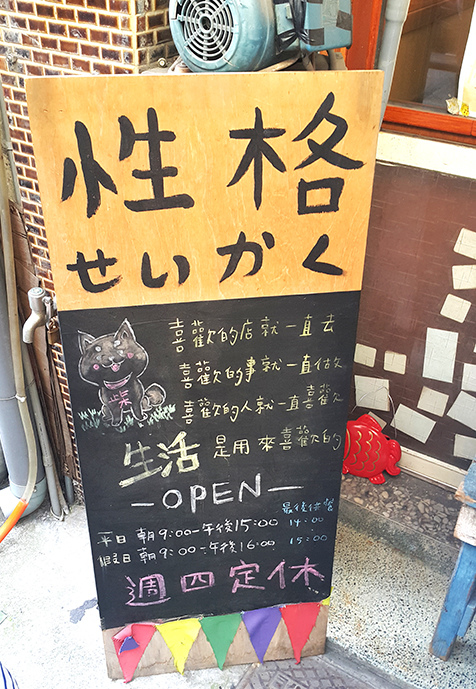 性格
せいかく
喜歡的店就一直去
喜歡的事就一直做
喜歡的人就一直喜歡
生活是用來喜歡的
—OPEN—
最後供餐
平日朝9:00-午後15:00 14:00
假日朝9:00-午後16:00 15:00
週四定休